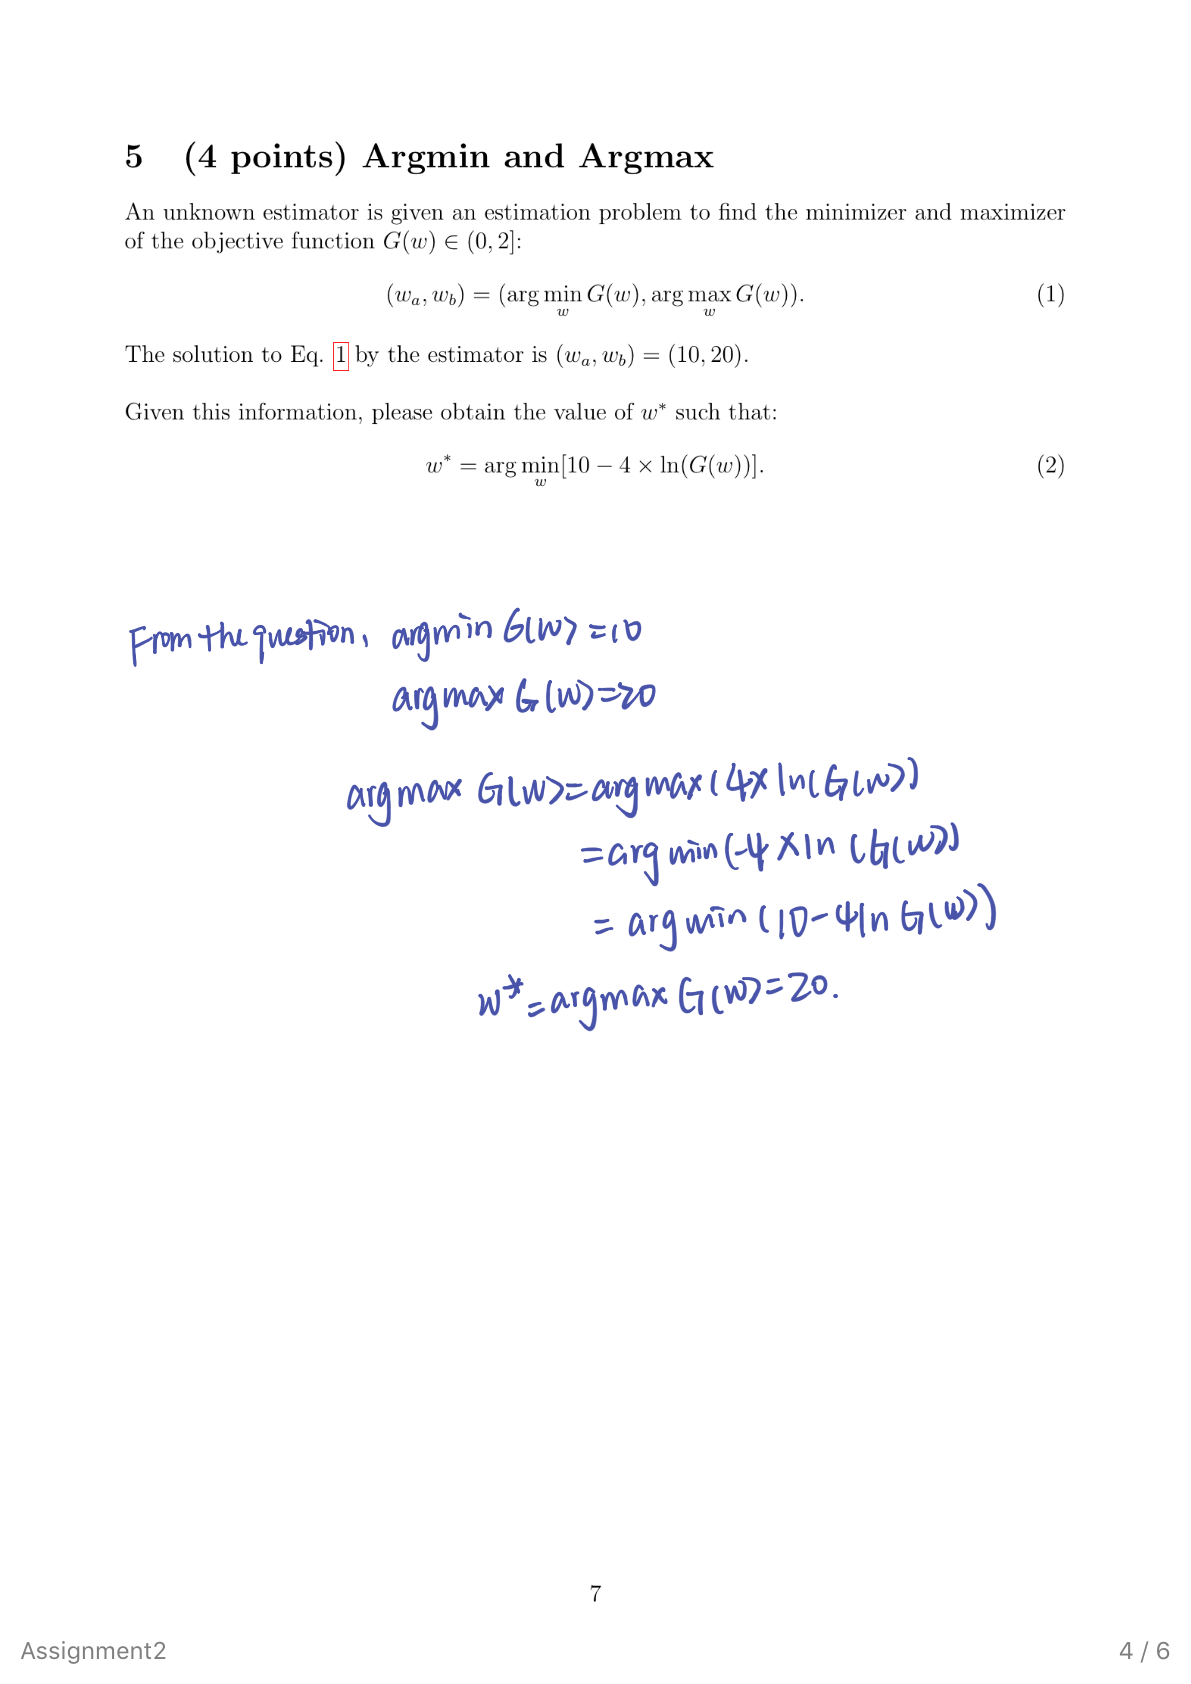 5 (4 points) Argmin and Argmax
An unknown estimator is given an estimation problem to find the minimizer and maximizer
of the objective function G(w) ∈ (0, 2]:
(w_a, w_b) = (arg min_w G(w), arg max_w G(w)). (1)
The solution to Eq. 1 by the estimator is (w_a, w_b) = (10, 20).
Given this information, please obtain the value of w* such that:
w* = arg min_w [10 − 4 × ln(G(w))]. (2)
From the question, argmin G(w) = 10
argmax G(w) = 20
argmax G(w) = argmax (4 × ln(G(w))
= arg min (-4 × ln (G(w))
= arg min (10 - 4 ln G(w))
w* = argmax G(w) = 20.
7
Assignment2
4 / 6